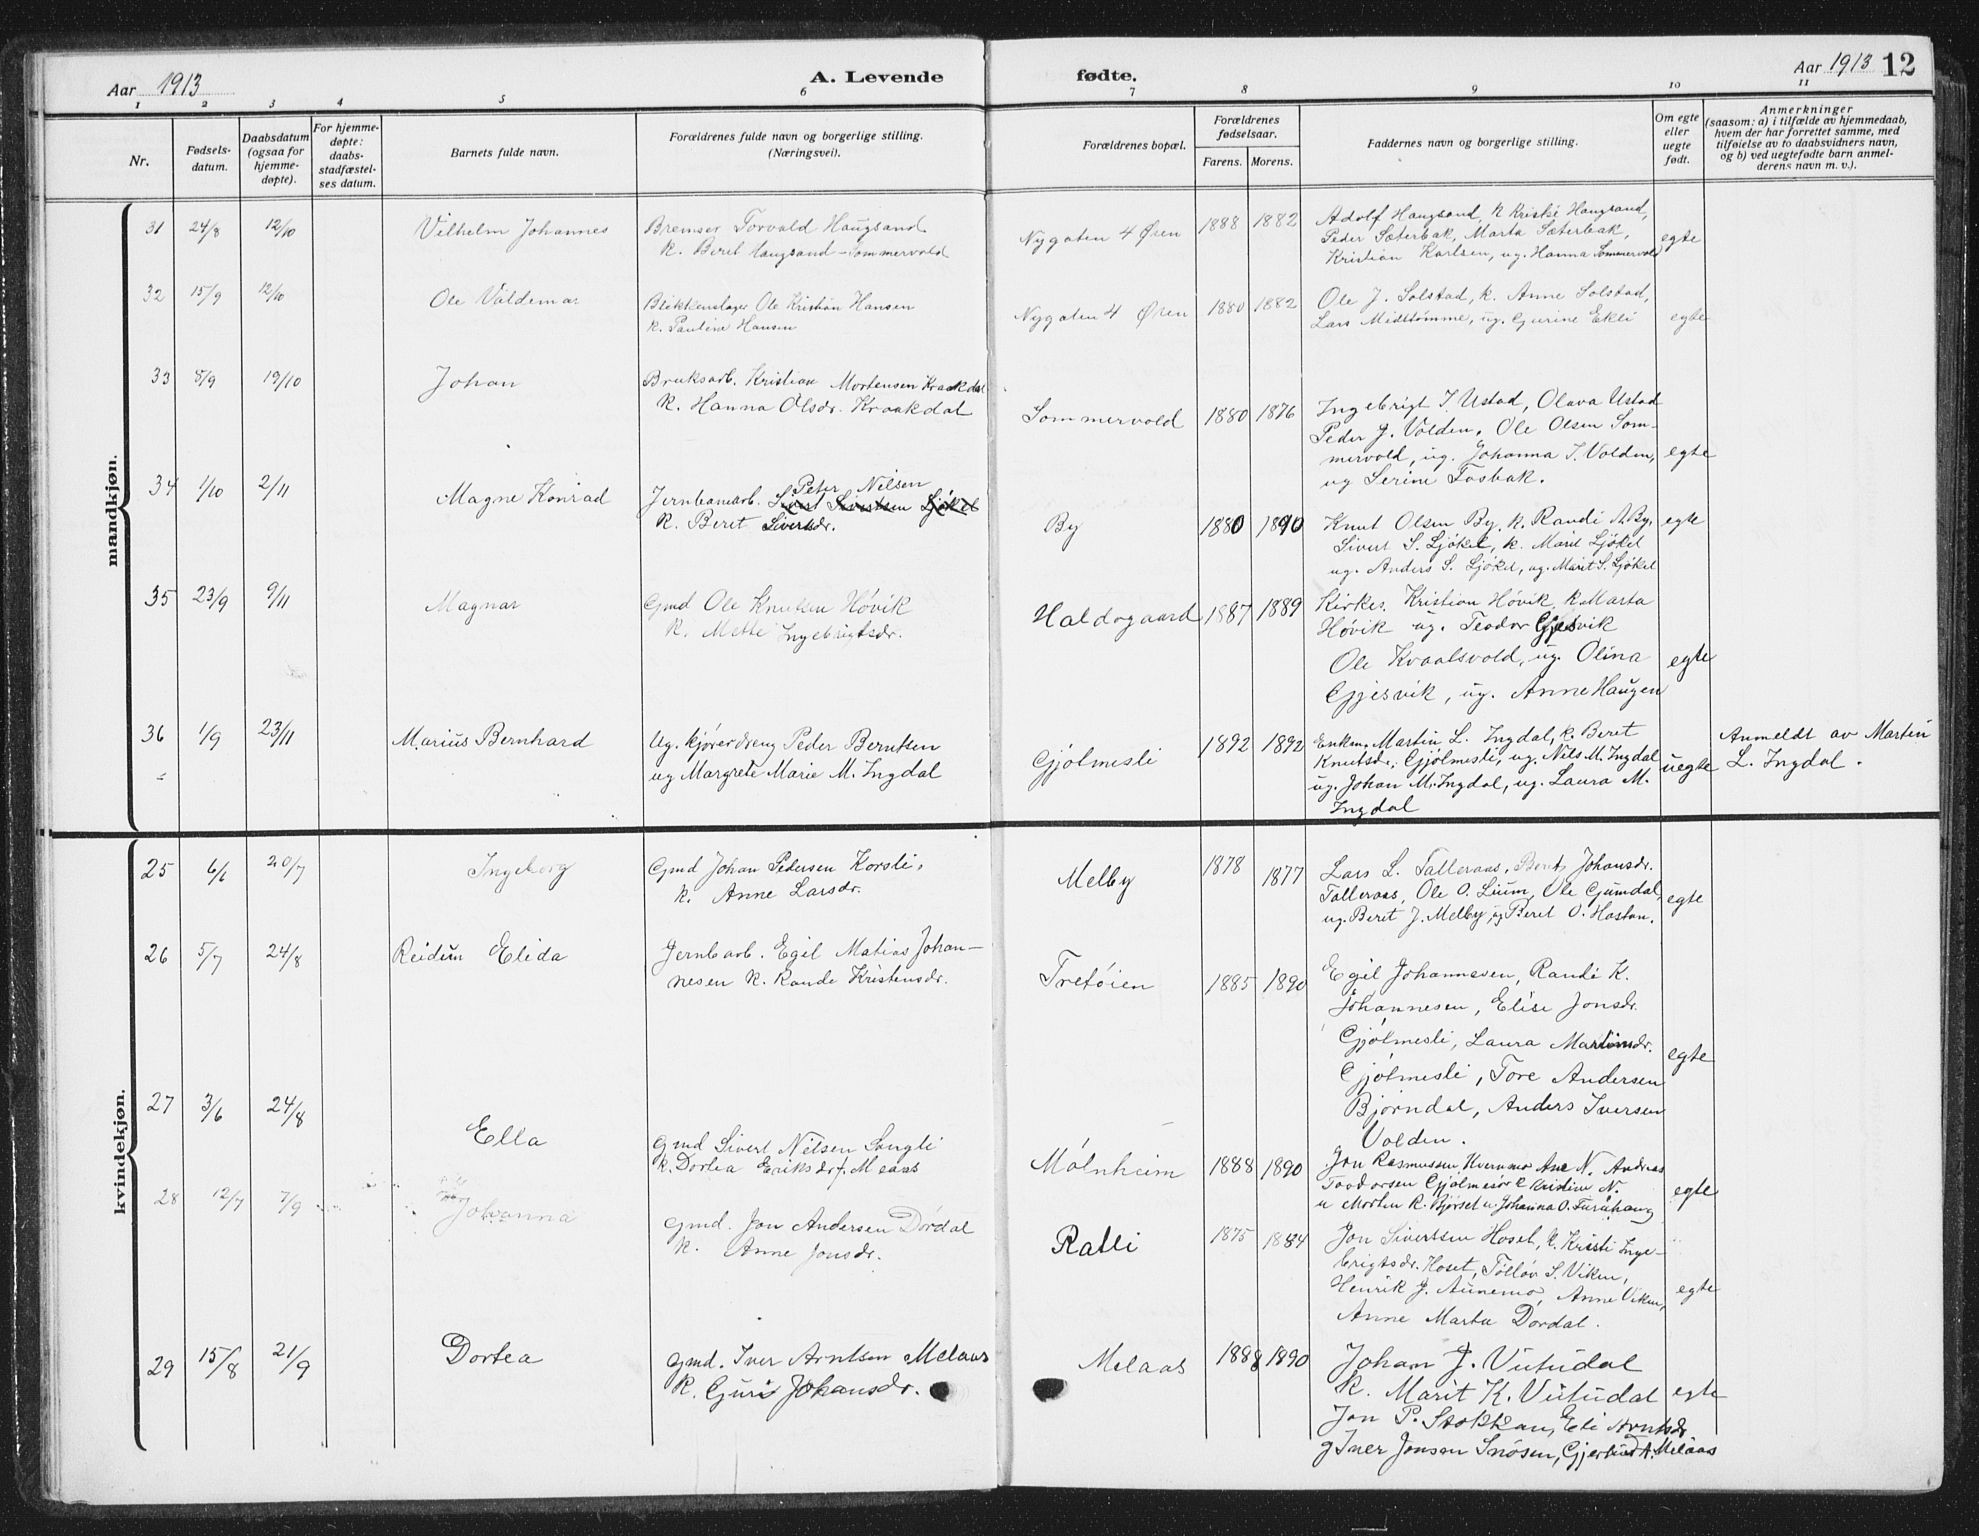 Aar 1913
A. Levende
fødte.
Aar 1913 12
1 2 3 4 5 6 7 8 9 10 11
Nr.
Fødsels-
datum.
Daabsdatum
(ogsaa for
hjemme-
døpte).
For hjemme-
døpte:
daabs-
stadfæstel-
ses datum.
Barnets fulde navn.
Forældrenes fulde navn og borgerlige stilling.
(Næringsvei).
Forældrenes bopæl.
Forældrenes
fødselsaar.
Farens. Morens.
Faddernes navn og borgerlige stilling.
Om egte
eller
uegte
født.
Anmerkninger
(saasom: a) i tilfælde av hjemmedaab,
hvem der har forrettet samme, med
tilføielse av to daabsvidners navn,
og b) ved uegtefødte barn anmel-
derens navn m. v.).
mandkjøn.
31 24/8 12/10 Vilhelm Johannes
Bremser Torvald Haugsand
k. Beret Haugsand - Sommervold
Nygaten 4 Øren 1888 1882
Adolf Haugsand, k Kriski Haugsand,
Peder Sæterbak, Marta Sæterbak,
Kristian Karlsen, ug. Hanna Sommervold
egte
32 15/9 12/10 Ole Valdemar
Blikkenslager Ole Kristian Hansen
k. Pauline Hansen
Nygaten 4 Øren 1880 1882
Ole J. Solstad, k. Anne Solstad,
Lars Midttømme, ug. Gurine Ekli
egte
33 8/9 19/10 Johan
Bruksarb. Kristian Mortensen Kraakdal
k. Hanna Olsdr. Kraakdal
Sommervold 1880 1876
Ingebrigt I. Ustad, Olava Ustad
Peder J. Volden, Ole Olsen Som-
mervold, ug. Johanna I. Volden,
ug Serine Fosbak.
egte
34 1/10 2/11 Magne Konrad
Peter Nilsen
Jernbanearb. Sivert Sivertsen Ljøkel
k. Beret Sivertsdr.
By 1880 1890
Knut Olsen By, k. Randi A. By,
Sivert S. Ljøkel, k. Marit Ljøkel
ug. Anders S. Ljøkel, ug. Marit S. Ljøkel
egte
35 23/9 9/11 Magnar
Gmd Ole Knutsen Høvik
k. Mette Ingebrigtsdr.
Haldogaard 1887 1889
Kirkes. Kristian Høvik, k. Marta
Høvik ug. Teodor Gjesvik
Ole Kvaalsvold, ug. Olina
Gjesvik, ug. Anne Haugen
egte
36 1/9 23/11 Marius Bernhard
Ug. kjøredreng Peder Berntsen
ug Margrete Marie M. Ingdal
Gjølmesli 1892 1892
Enkm. Martin L. Ingdal, k. Beret
Knutsdr. Gjølmesli, ug. Nils M. Ingdal
ug. Johan M. Ingdal, ug. Laura M.
Ingdal
uegte
Anmeldt av Martin
L. Ingdal.
kvindekjøn.
25 6/6 20/7 Ingeborg
Gmd Johan Pedersen Korsli,
k. Anne Larsdr.
Melby 1878 1877
Lars L. Talleraas, Berit Johansdr.
Talleraas, Ole O. Lium, Ole Gumdal,
ug. Beret J. Melby, ug Beret O. Hoston.
egte
26 5/7 24/8 Reidun Elida
Jernb arb. Egil Matias Johan-
nesen k. Rande Kristensdr.
Tretøien 1885 1890
Egil Johannesen, Randi K.
Johannesen, Elise Jonsdr.
Gjølmesli, Laura Martinsdr.
Gjølmesli, Tore Andersen
Bjørndal, Anders Iversen
Volden.
egte
27 3/6 24/8 Ella
Gmd Sivert Nilsen Songli
k. Dortea Eriksdr f. Meaas
Mølnheim 1888 1890
Jon Rasmussen Kvernmo Ane N. Andreas
Teodorsen Gjølmesør Kristine N.
u Morten R. Bjørset u. Johanna O. Furuhaug
egte
28 12/7 7/9 Johanna
Gmd. Jon Andersen Dørdal
k. Anne Jonsdr.
Ratli 1875 1884
Jon Sivertsen Hoset, k. Kristi Inge-
brigtsdr. Hoset, Tølløv S. Viken,
Henrik J. Aunemo, Anne Viken,
Anne Marta Dørdal.
egte
29 15/8 21/9 Dortea
Gmd. Iver Arntsen Melaas
k. Guri Johansdr.
Melaas 1888 1890
Johan J. Vutudal
k. Marit K. Vutudal
Jon P. Stokkan, Eli Arntsdr
g Iver Jonsen Snøsen, Gjertrud A. Melaas
egte